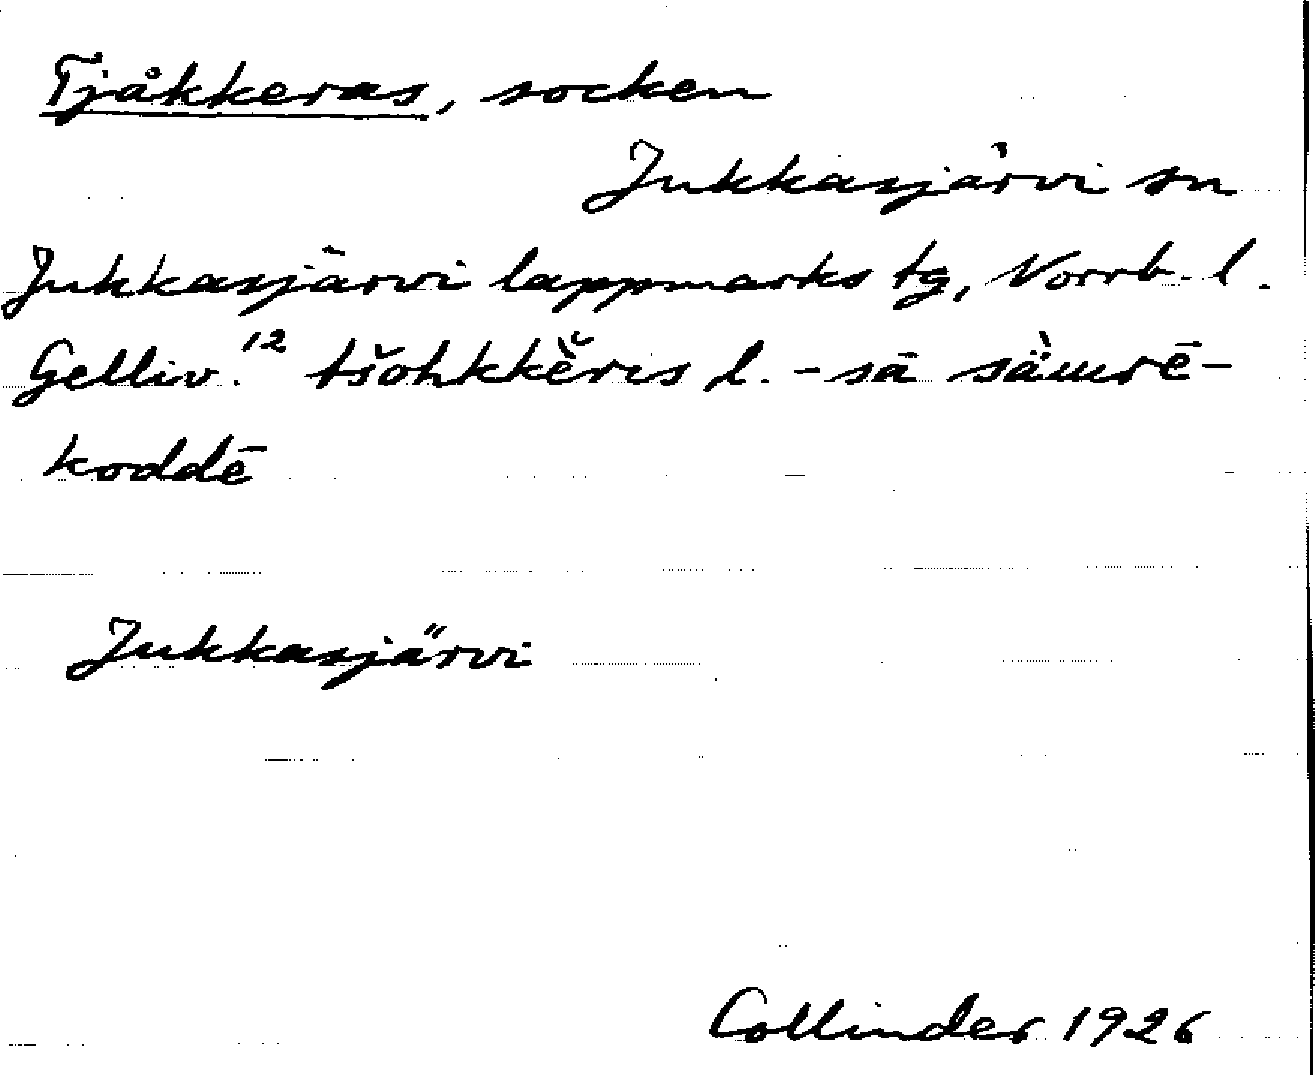 Tjåkkeras, socken
Jukkasjärvi sn
Jukkasjärvi lappmarks tg, Norrb. l.
Gelliv.¹² tšohkkĕris l. -sā
koddē
Jukkasjärvi
Collinder 1926